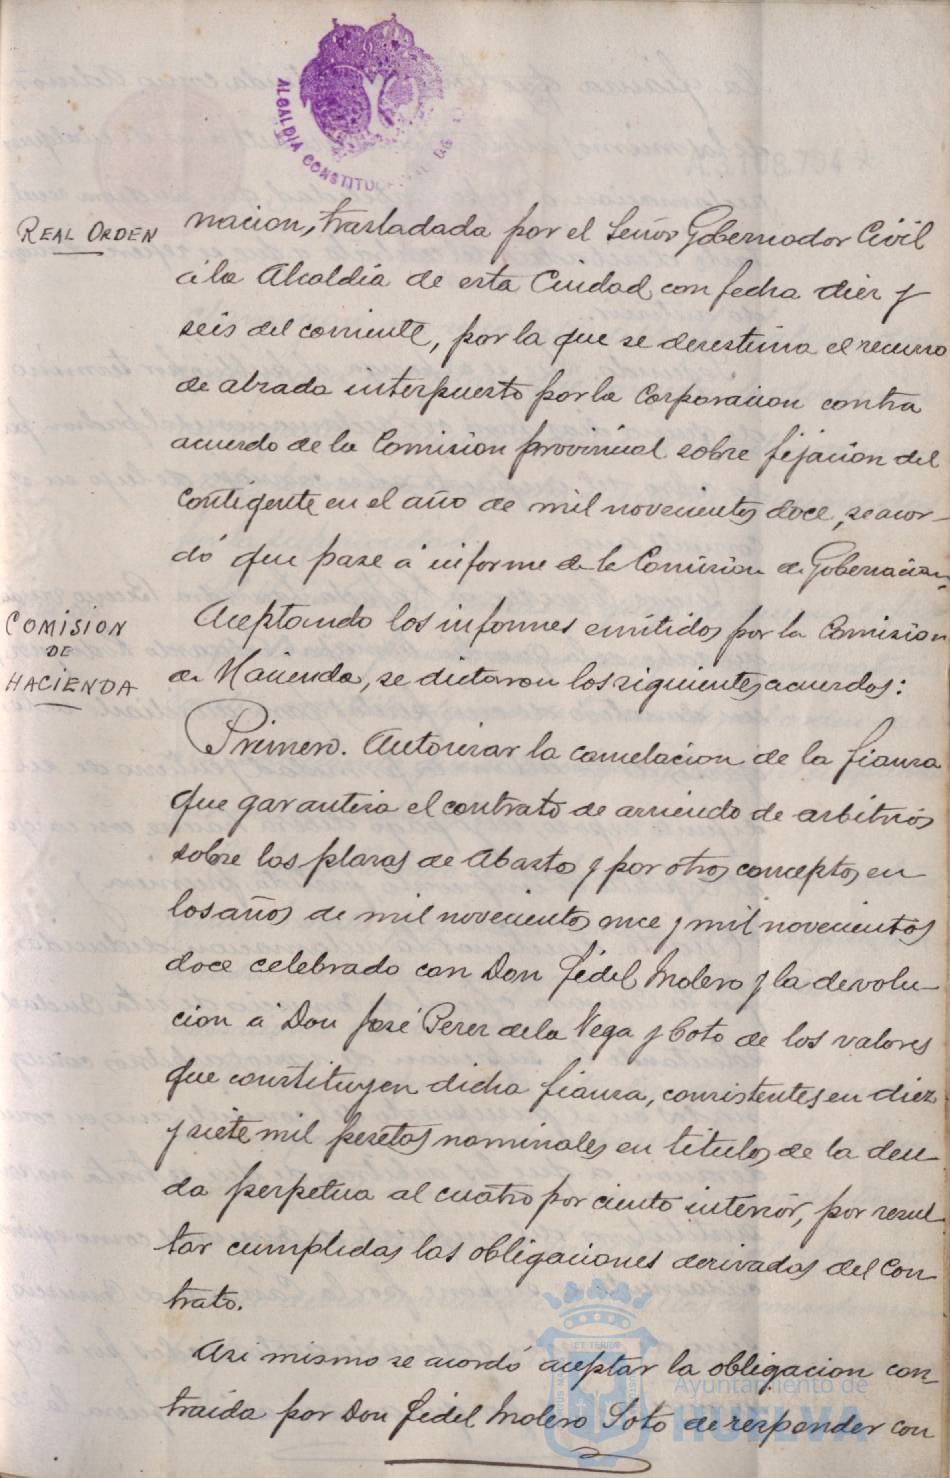 ALCALDIA CONSTITUCIONAL DE
REAL ORDEN
nacion, trasladada por el Señor Gobernador Civil
á la Alcaldía de esta Ciudad con fecha diez y
seis del corriente, por la que se desestima el recurso
de alzada interpuesto por la Corporacion contra
acuerdo de la Comision provincial sobre fijacion del
contigente en el año de mil novecientos doce, se acor-
dó que pase á informe de la Comision de Gobernacion.
COMISION
DE
HACIENDA
Aceptando los informes emitidos por la Comision
de Hacienda, se dictaron los siguientes acuerdos:
Primero. Autorizar la cancelacion de la fianza
que garantiza el contrato de arriendo de arbitrios
sobre las plazas de Abastos y por otros conceptos en
los años de mil novecientos once y mil novecientos
doce celebrado con Don Fidel Molero y la devolu-
cion á Don José Perez de la Vega y Coto de los valores
que constituyen dicha fianza, consistentes en diez
y siete mil pesetas nominales en titulos de la deu-
da perpetua al cuatro por ciento interior, por resul-
tar cumplidas las obligaciones derivadas del Con-
trato.
Asi mismo se acordó aceptar la obligacion con-
traida por Don Fidel Molero Soto de responder con
Ayuntamiento de
HUELVA